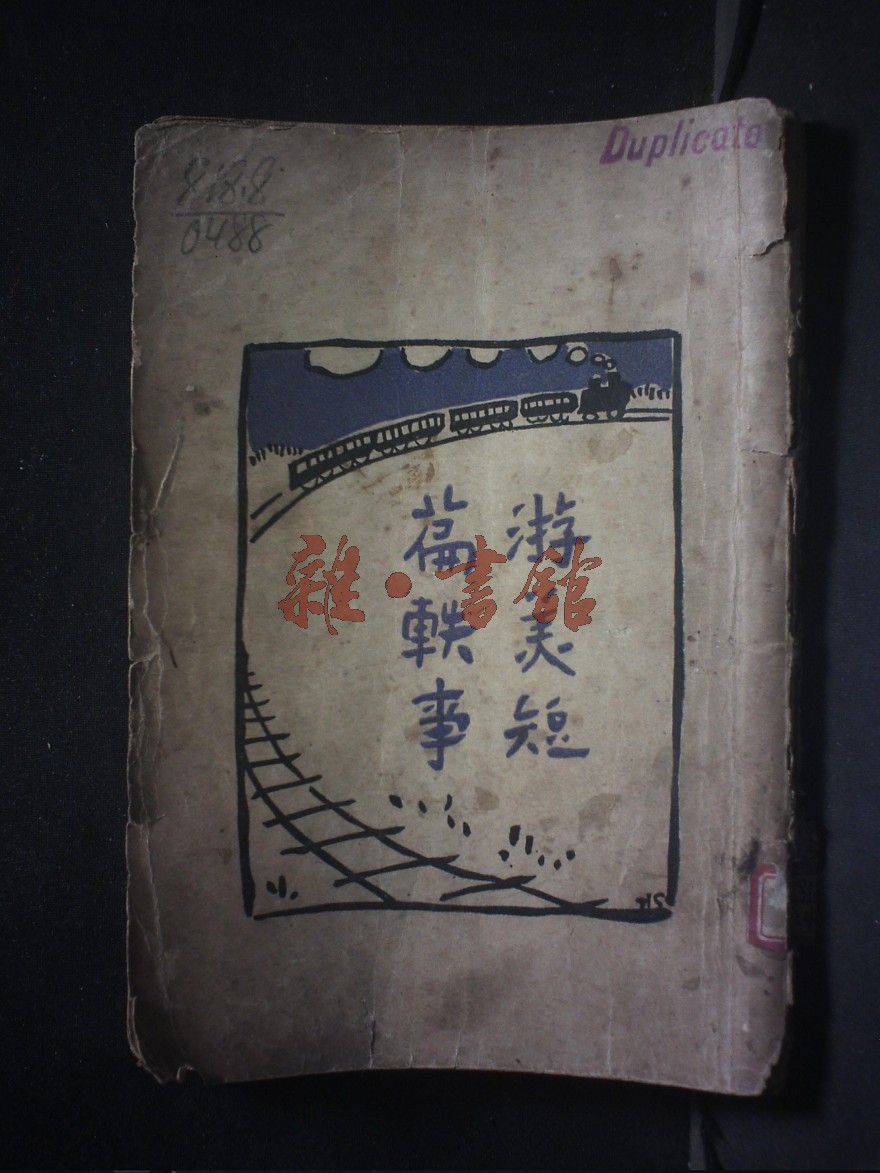 Duplicate
818.8
0488
游美短
篇軼事
雜·書館